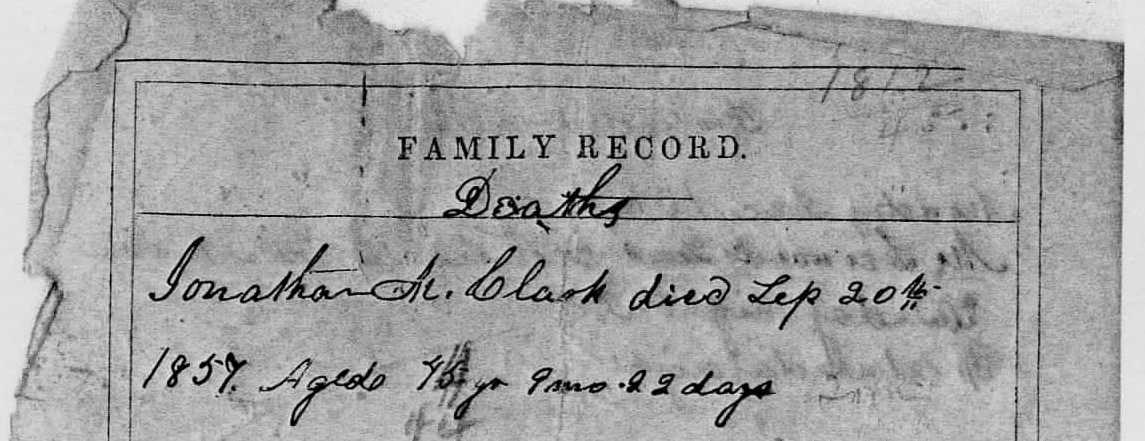 1812
FAMILY RECORD.
Deaths
Jonathan M. Clark died Sep 20th
1857. Aged 45 yr 9 mo. 22 days
44